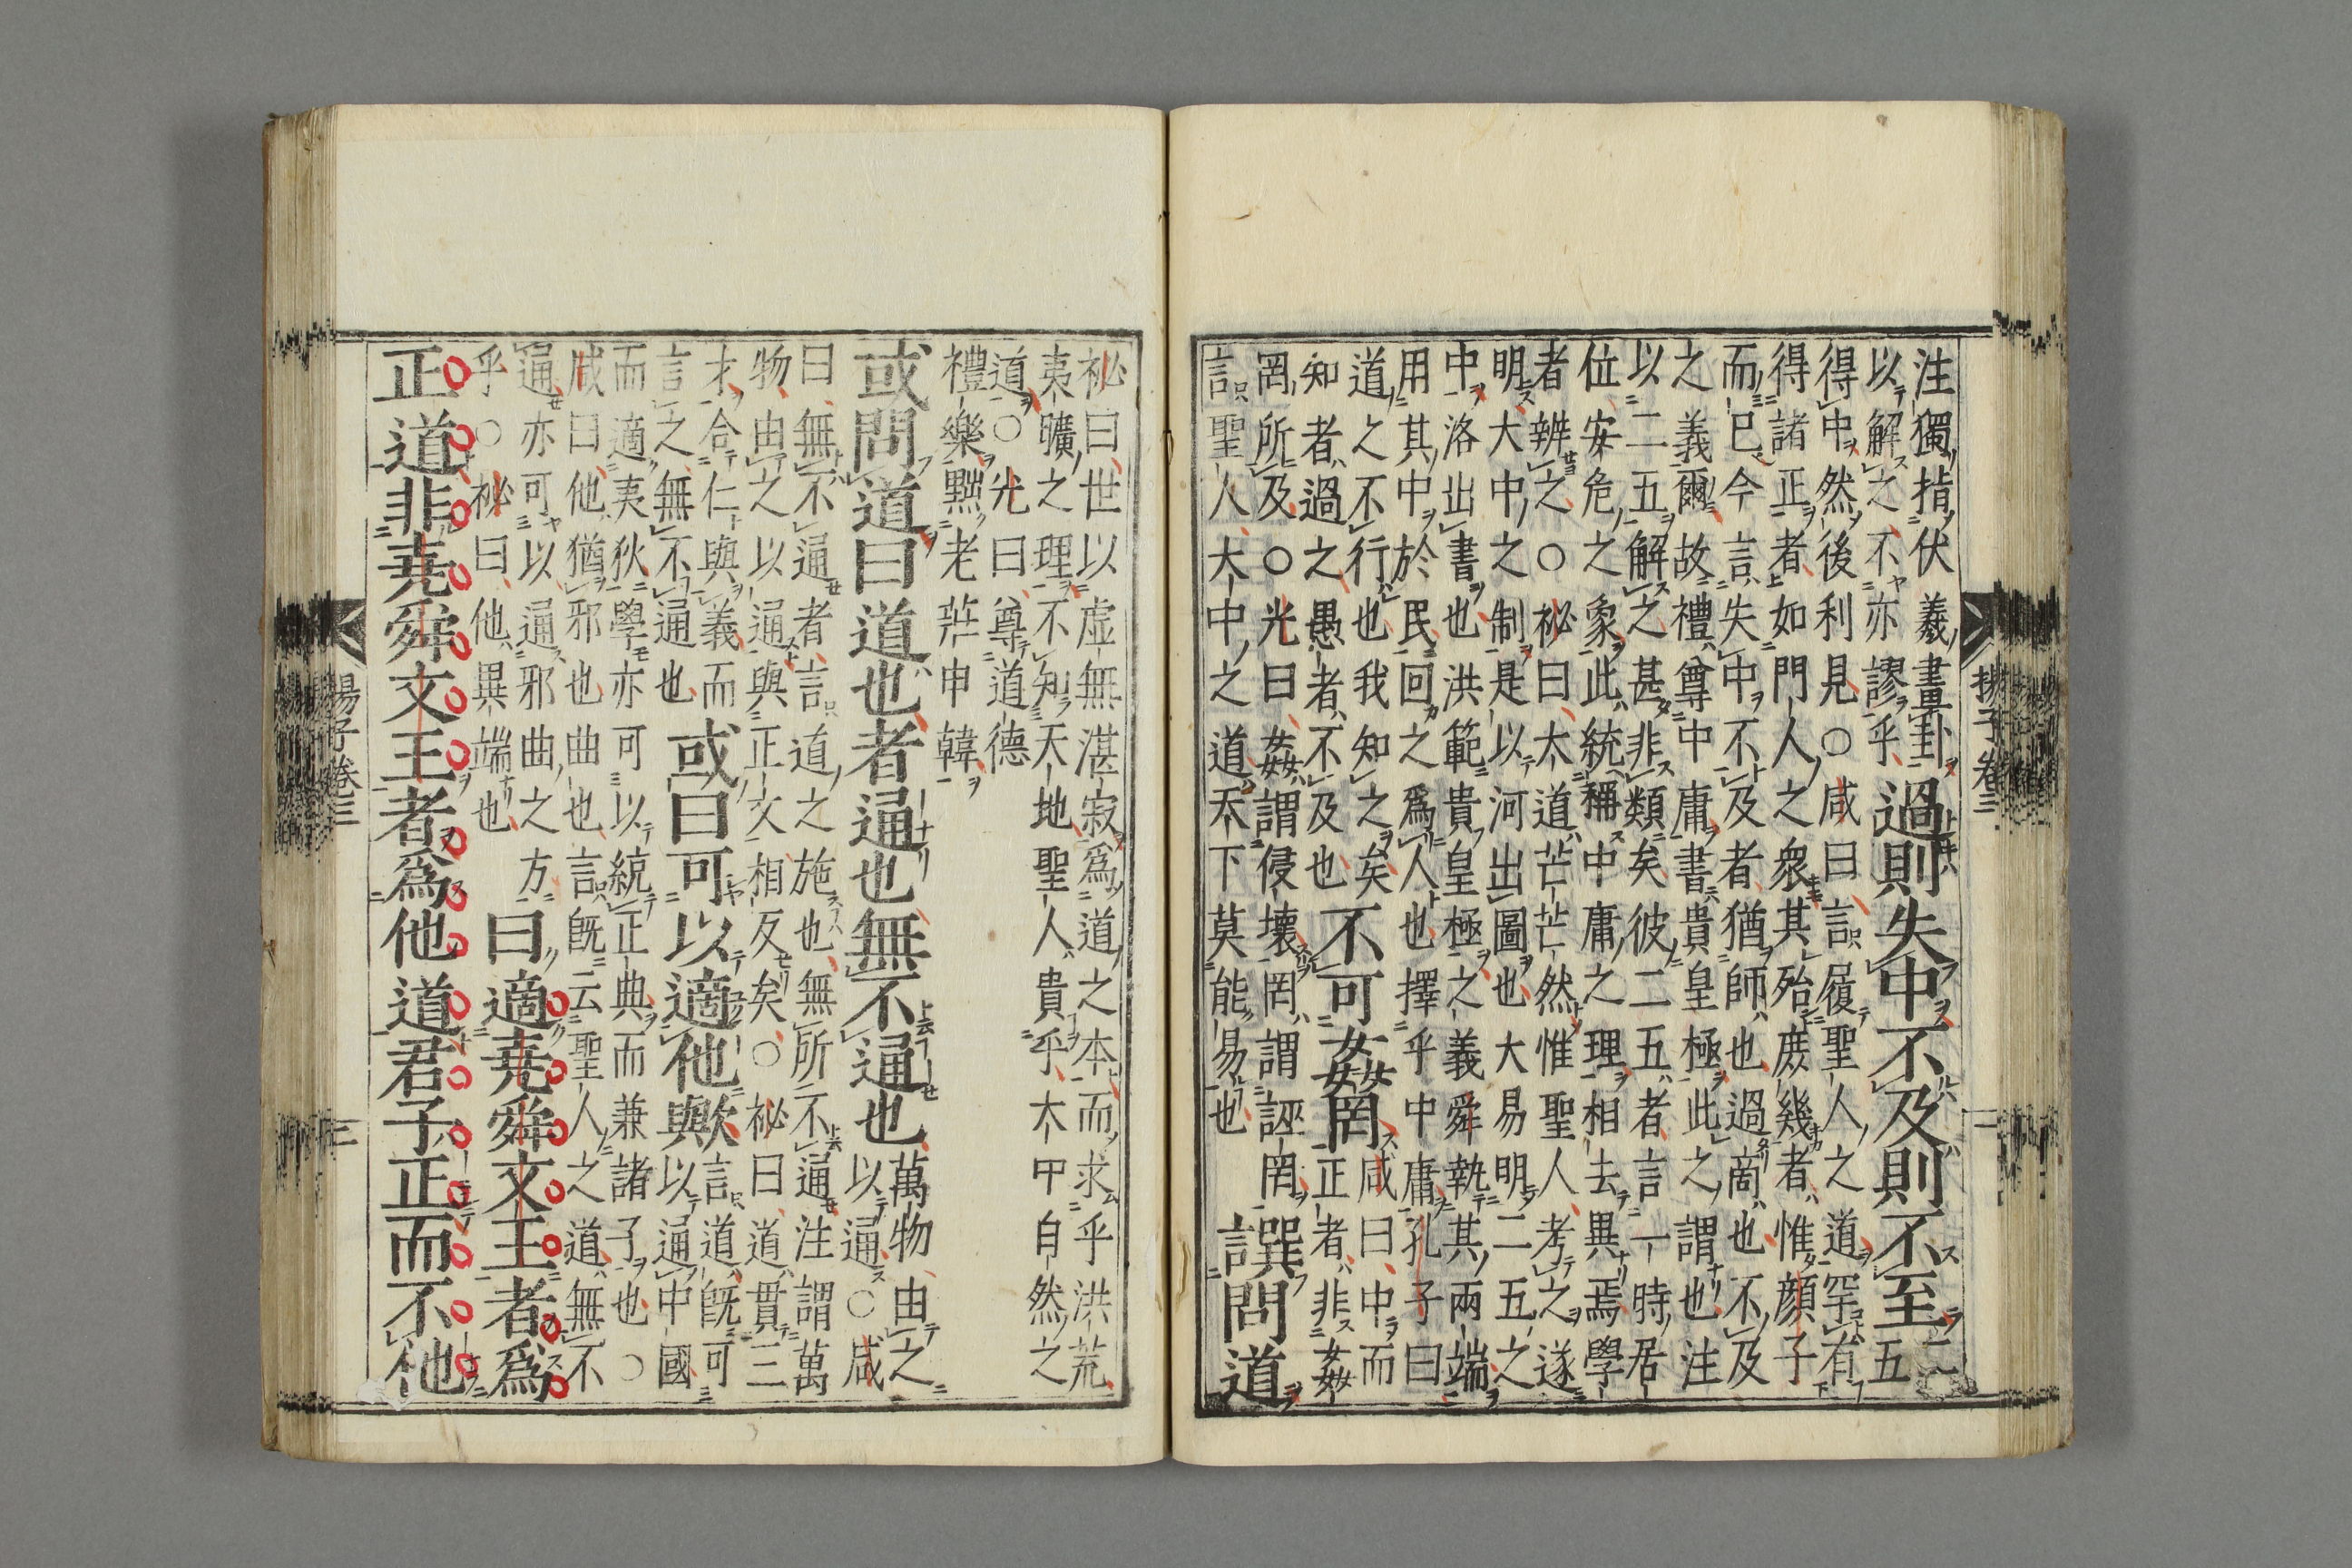 揚子卷三
注獨指伏羲畫卦
以解之不亦謬乎
過則失中不及則不至
二
五
得中然後利見○咸曰言履聖人之道罕有
得諸正者如門人之衆其殆庶幾者惟顏子
而已今言失中不及者猶師也過商也不及
之義爾故禮尊中庸書貴皇極此之謂也注
以二五解之甚非類矣彼二五者言一時居
位安危之象此統稱中庸之理相去異焉學
者辨之○祕曰大道芒芒然惟聖人考之遂
明大中之制是以河出圖也大易明二五之
中洛出書也洪範貴皇極之義舜執其兩端
用其中於民回之爲人也擇乎中庸孔子曰
道之不行也我知之矣
知者過之愚者不及也
不可姦罔
咸曰中而
正者非姦
罔所及○光曰姦謂侵壞罔謂誣罔
言聖人大中之道天下莫能易也
譔問道
祕曰世以虛無湛寂爲道之本而求乎洪荒
夷曠之理不知天地聖人貴乎大中自然之
道○光曰尊道德
禮樂黜老莊申韓
或問道曰道也者通也無不通也
萬物由之
以通○咸
曰無不通者言道之施也無所不通注謂萬
物由之以通與正文相反矣○祕曰道貫三
才合仁與義而
言之無不通也
或曰可以適他歟
言道既可
以通中國
而適夷狄學亦可以統正典而兼諸子也○
咸曰他猶邪也曲也言既云聖人之道無不
通亦可以通邪曲之方
乎○祕曰他異端也
曰適堯舜文王者爲
正道非堯舜文王者爲他道君子正而不他
揚子卷三
三